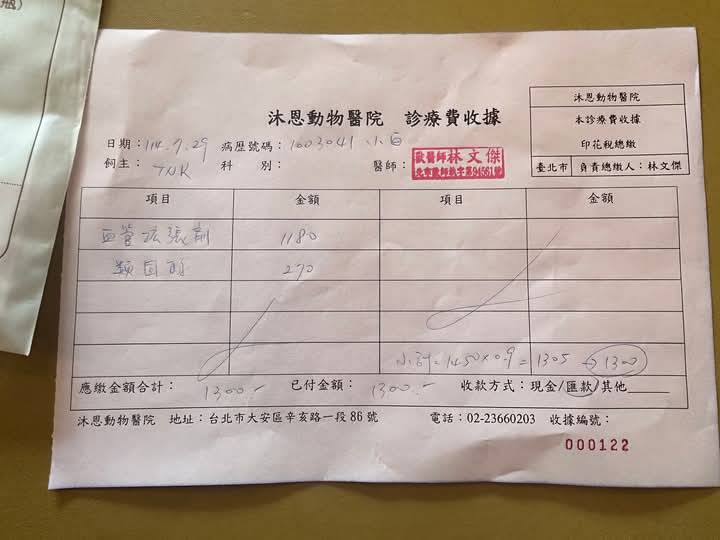 瓶)
沐恩動物醫院 診療費收據
沐恩動物醫院
本診療費收據
印花稅總繳
臺北市 負責總繳人:林文傑
日期:114.7.29 病歷號碼:1603041 小白
飼主:TNR 科 別: 醫師:獸醫師林文傑
項目 金額 項目 金額
血管擴張劑 1180
類固醇 270
小計=1450×0.9=1305→1300
應繳金額合計:1300.- 已付金額:1300.- 收款方式:現金/匯款/其他
沐恩動物醫院 地址:台北市大安區辛亥路一段86號 電話:02-23660203 收據編號:
000122